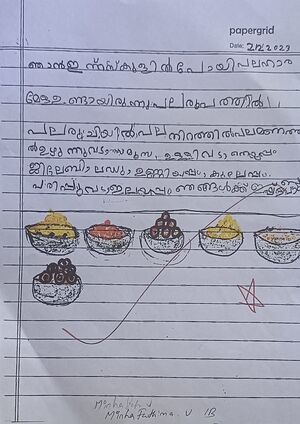 papergrid
Date: 2/2/2023
ഞാൻ ഇന്ന് സ്കൂളിൽ പോയി പലഹാര
മേള ഉണ്ടായിരുന്നു പല രൂപത്തിൽ
പല രുചിയിൽ പല നിറത്തിൽ പല മണത്ത
ൽ ഉഴുന്നുവട സമൂസ, ഉള്ളിവട നെയ്യപ്പം
ജിലേബി ലഡു ഉണ്ണിയപ്പം കലത്തപ്പം
പരിപ്പുവട ഇലയപ്പം ഞങ്ങൾക്ക്
Minha Fathima. V 1B